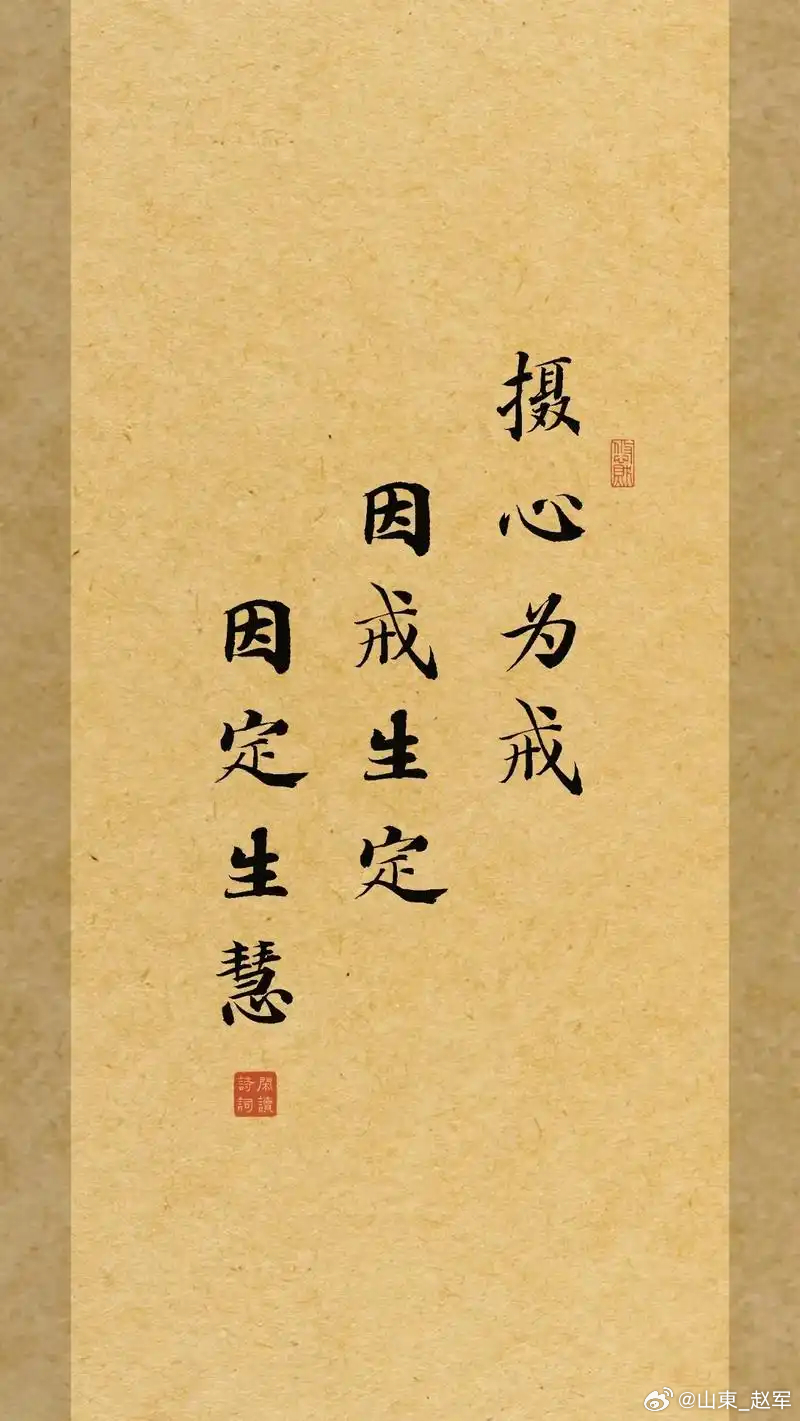 摄心为戒
因戒生定
因定生慧
閑讀詩詞
@山東_赵军